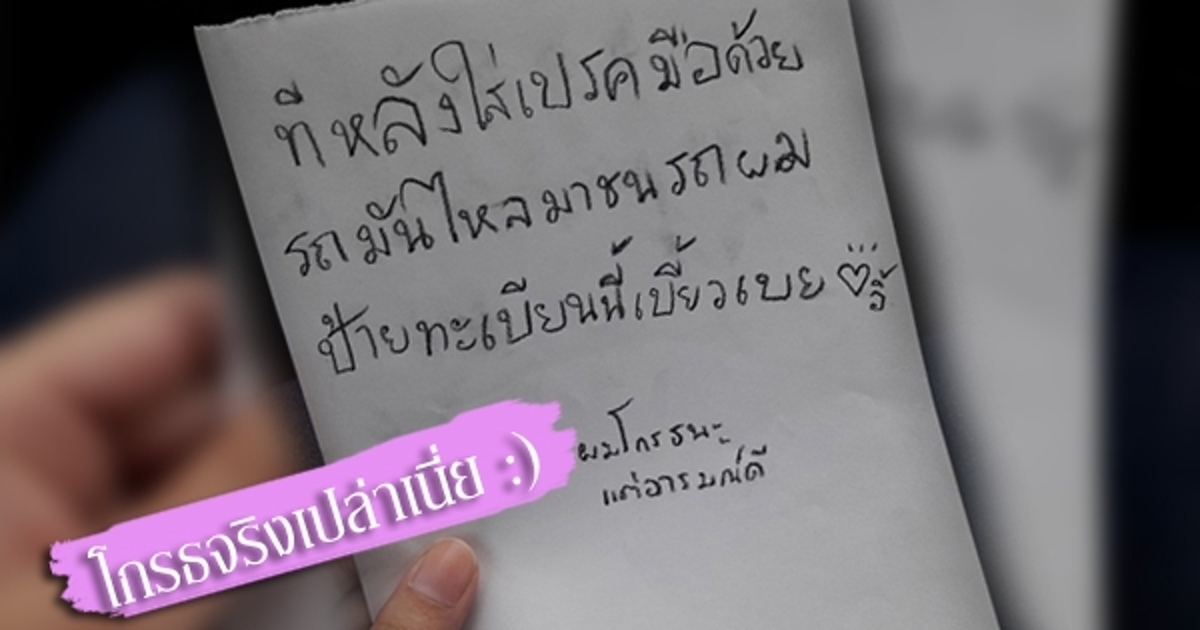 ทีหลังใส่เปรคมือด้วย
รถมันไหลมาชนรถผม
ป้ายทะเบียนนี้เบี้ยวเบย ♡
ผมโกรธนะ
แต่อารมณ์ดี
โกรธจริงเปล่าเนี่ย :)